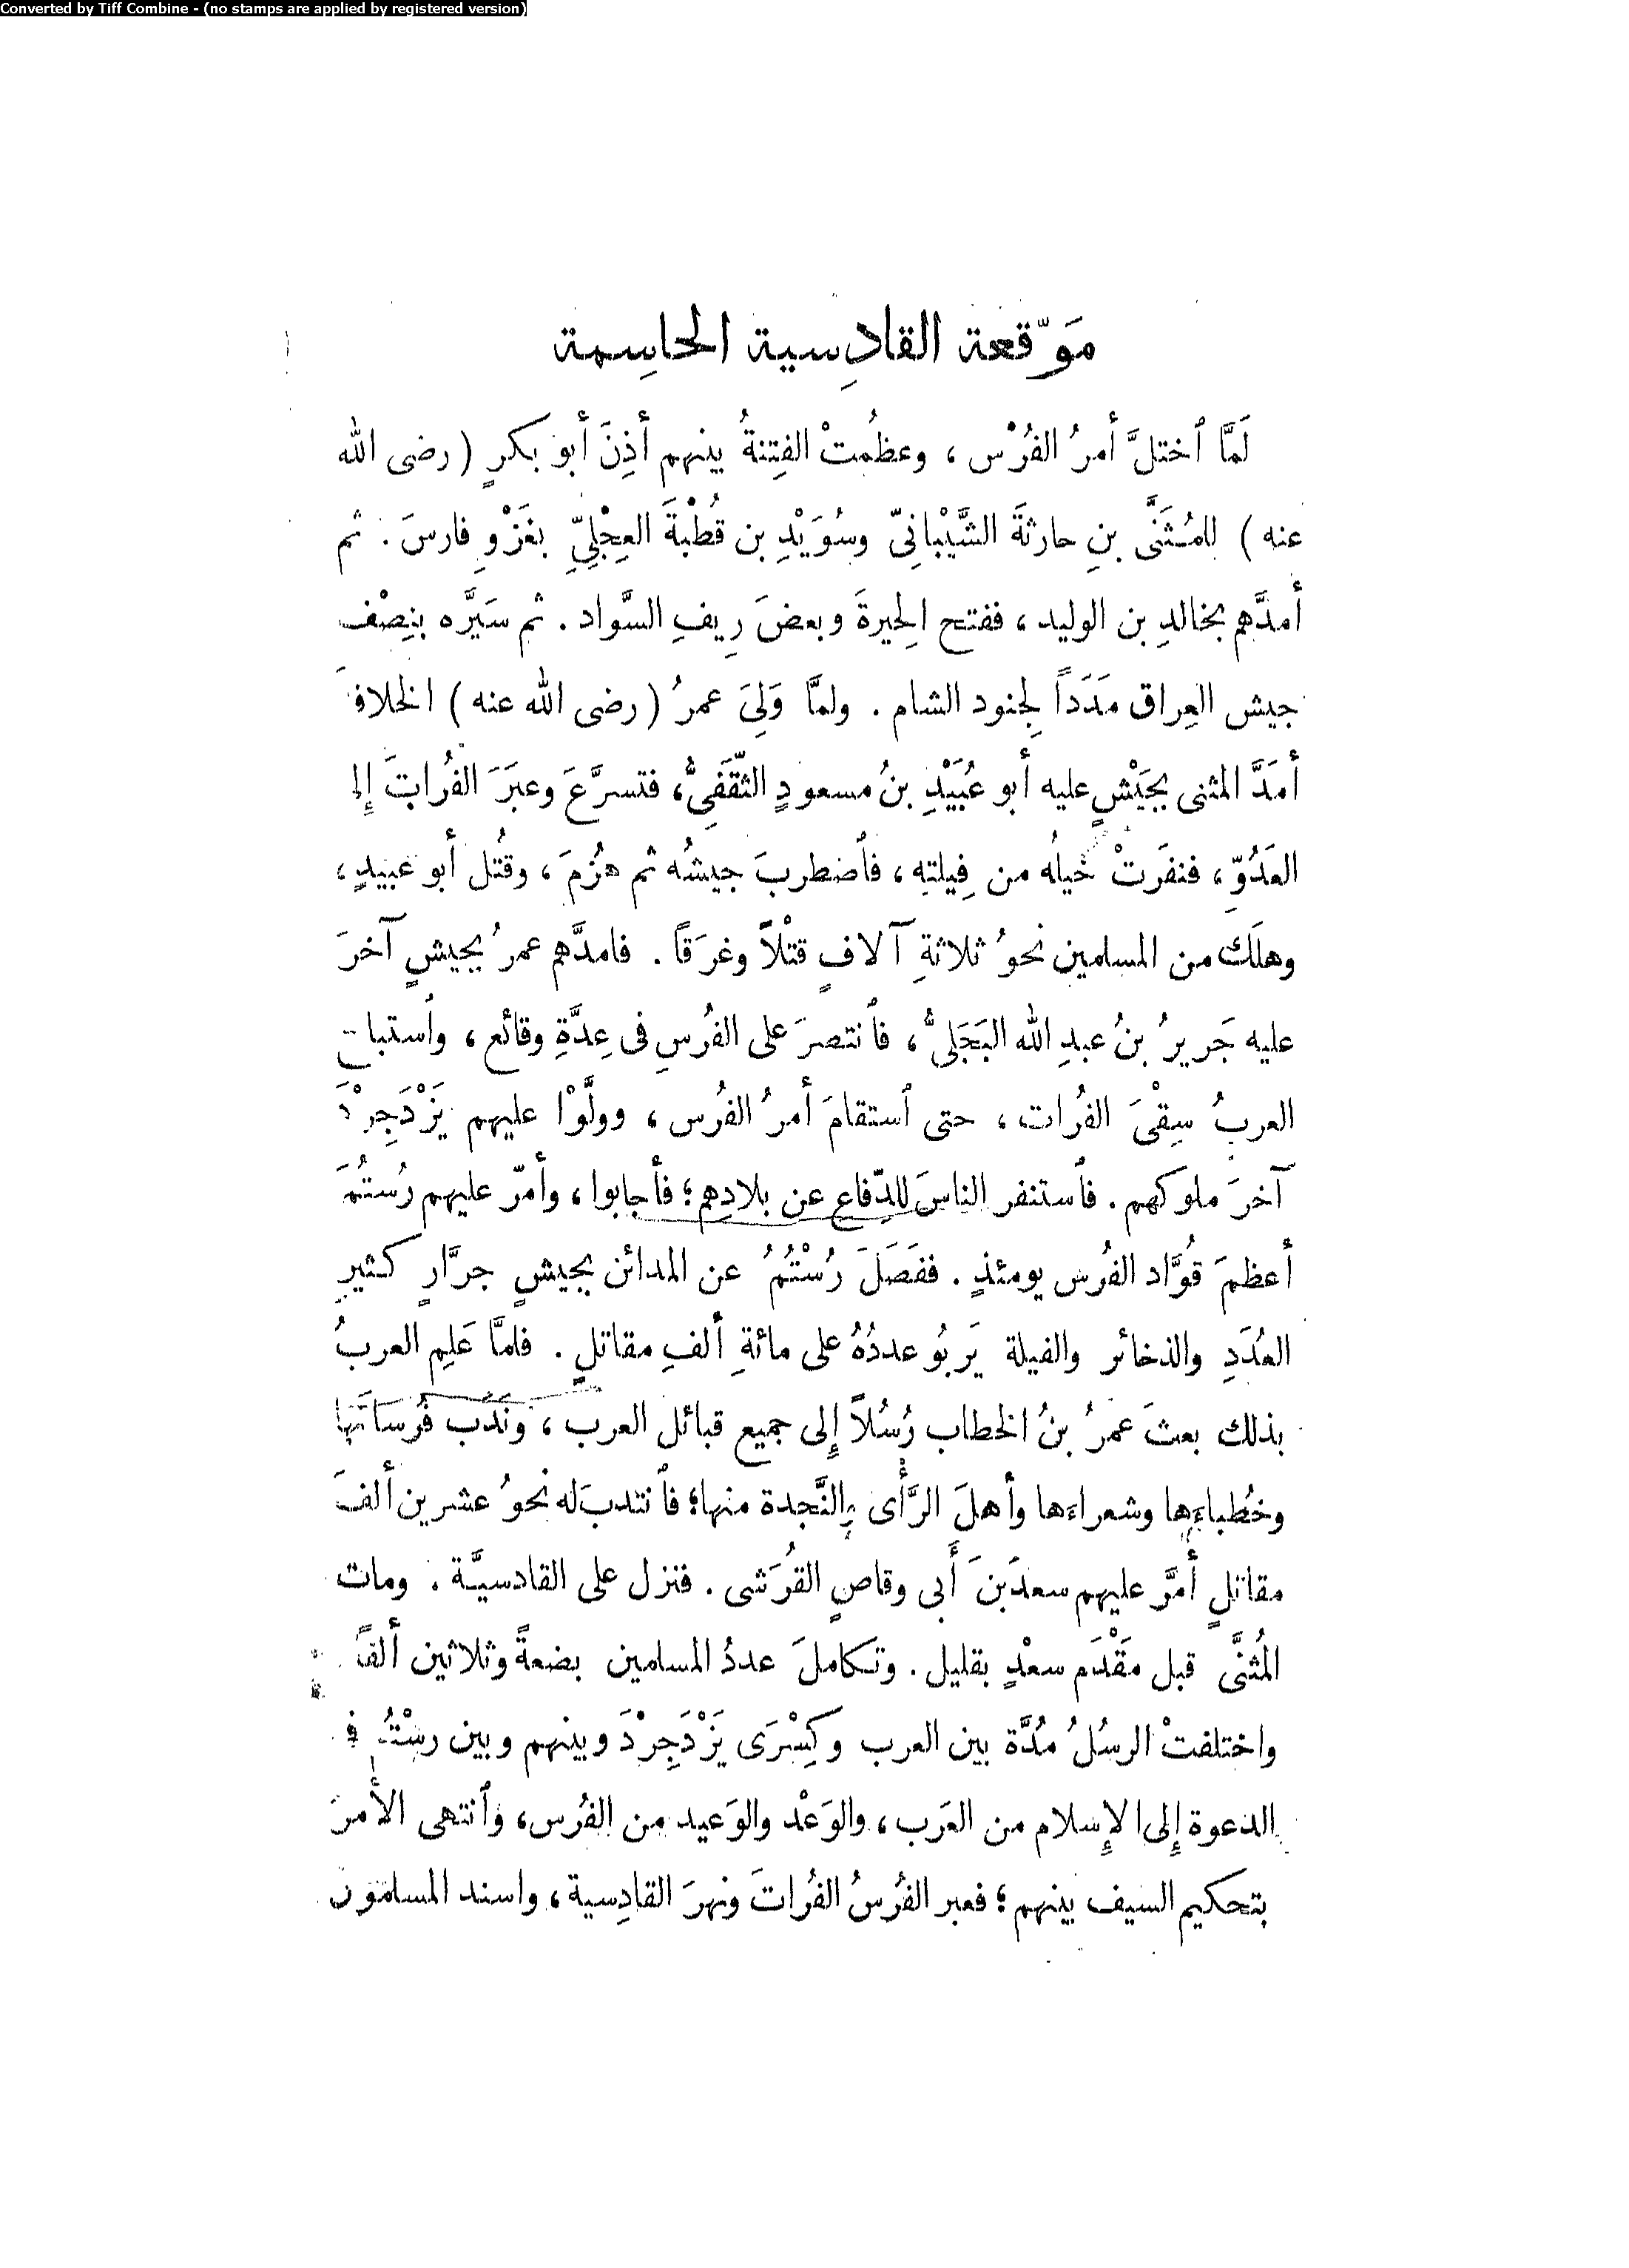 Converted by Tiff Combine - (no stamps are applied by registered version)
مَوّقعة القادِسية الحاسِمة
لَمَّا ٱختلَّ أمرُ الفُرْس ، وعظُمتْ الفِتنةُ بينهم أذِنَ أبو بكرٍ ( رضى الله
عنه ) للمُثَنَّى بنِ حارثةَ الشَّيْبانِىّ وسُوَيْدِ بن قُطْبةَ العِجْلِىِّ بغَزْوِ فارسَ . ثم
أمدَّهم بخالدِ بن الوليد ، ففتح الحِيرةَ وبعضَ رِيفِ السَّواد . ثم سَيَّره بنِصْف
جيش العِراق مَدَداً لِجنود الشام . ولمَّا وَلِىَ عمرُ ( رضى الله عنه ) الخلاف
أمَدَّ المثنى بجَيْشٍ عليه أبو عُبَيْدِ بنُ مسعودٍ الثَّقَفِىُّ ، فتسرَّعَ وعبَرَ الفُراتَ إلى
العَدُوِّ ، فنفَرَتْ خيلُه من فِيلتِه ، فٱضطربَ جيشُه ثم هُزِمَ ، وقُتُل أبو عبيدٍ ،
وهلَك من المسلمين نحوُ ثلاثةِ آلافٍ قتْلاً وغرَقاً . فامدَّهم عمرُ بجيشٍ آخرَ
عليه جَريرُ بنُ عبدِ الله البَجَلىُّ ، فٱنتصرَ على الفُرسِ فى عِدَّةِ وقائع ، وٱستباح
العربُ سِقْىَ الفُرات ، حتى ٱستقامَ أمرُ الفُرس ، وولَّوْا عليهم يَزْدَجِرْدَ
آخرَ ملوكهم . فٱستنفر الناسَ للدِّفاع عن بلادِهم ؛ فأجابوا ، وأمّر عليهم رُستُمَ
أعظمَ قُوَّاد الفُرس يومئذٍ . ففَصَلَ رُسْتُمُ عن المدائن بجيشٍ جرَّارٍ كثيرِ
العُدَدِ والذخائر والفيلة يَربُو عددُهُ على مائةِ ألفِ مقاتلٍ . فلمَّا عَلِم العربُ
بذلك بعثَ عمرُ بنُ الخطاب رُسُلاً إلى جميع قبائل العرب ، ونَدَب فُرسانَها
وخُطباءها وشعراءها وأهلَ الرَّأْى والنَّجدة منها؛ فٱنتدبَ له نحوُ عشرين ألفَ
مقاتلٍ أمَّر عليهم سعدَ بنَ أَبى وقاصٍ القُرَشى . فنزل على القادسيَّة . ومات
المُثنَّى قبل مَقْدَم سعْدٍ بقليل . وتكاملَ عددُ المسلمين بضعةً وثلاثين ألفاً .
واختلفتْ الرسُلُ مُدَّة بين العرب وكِسْرَى يَزْدَجِرْدَ وبينهم وبين رسْتُم فى
الدعوة إلى الإسلام من العَرب ، والوَعْد والوَعيد من الفُرس، وٱنتهى الأمرَ
بتحكيم السيف بينهم ؛ فعبر الفُرسُ الفُراتَ ونهرَ القادِسية ، واسند المسلمون